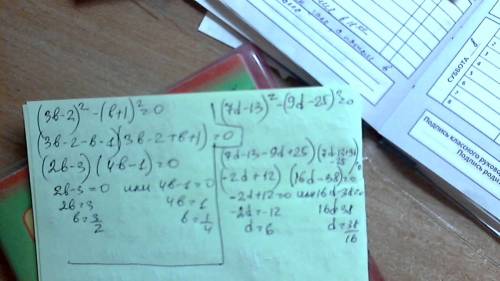 (3в-2)² - (в+1)² = 0
(3в-2-в-1)(3в-2+в+1) = 0
(2в-3)(4в-1) = 0
2в-3 = 0 или 4в-1 = 0
2в = 3 4в = 1
в = 3/2 в = 1/4
(7d-13)² - (9d-25)² = 0
(7d-13-9d+25)(7d-13+9d-25) = 0
(-2d+12)(16d-38) = 0
-2d+12 = 0 или 16d-38 = 0
-2d = -12 16d = 38
d = 6 d = 38/16
СУББОТА
6
7
8
Подпись классного руково
Подпись роди